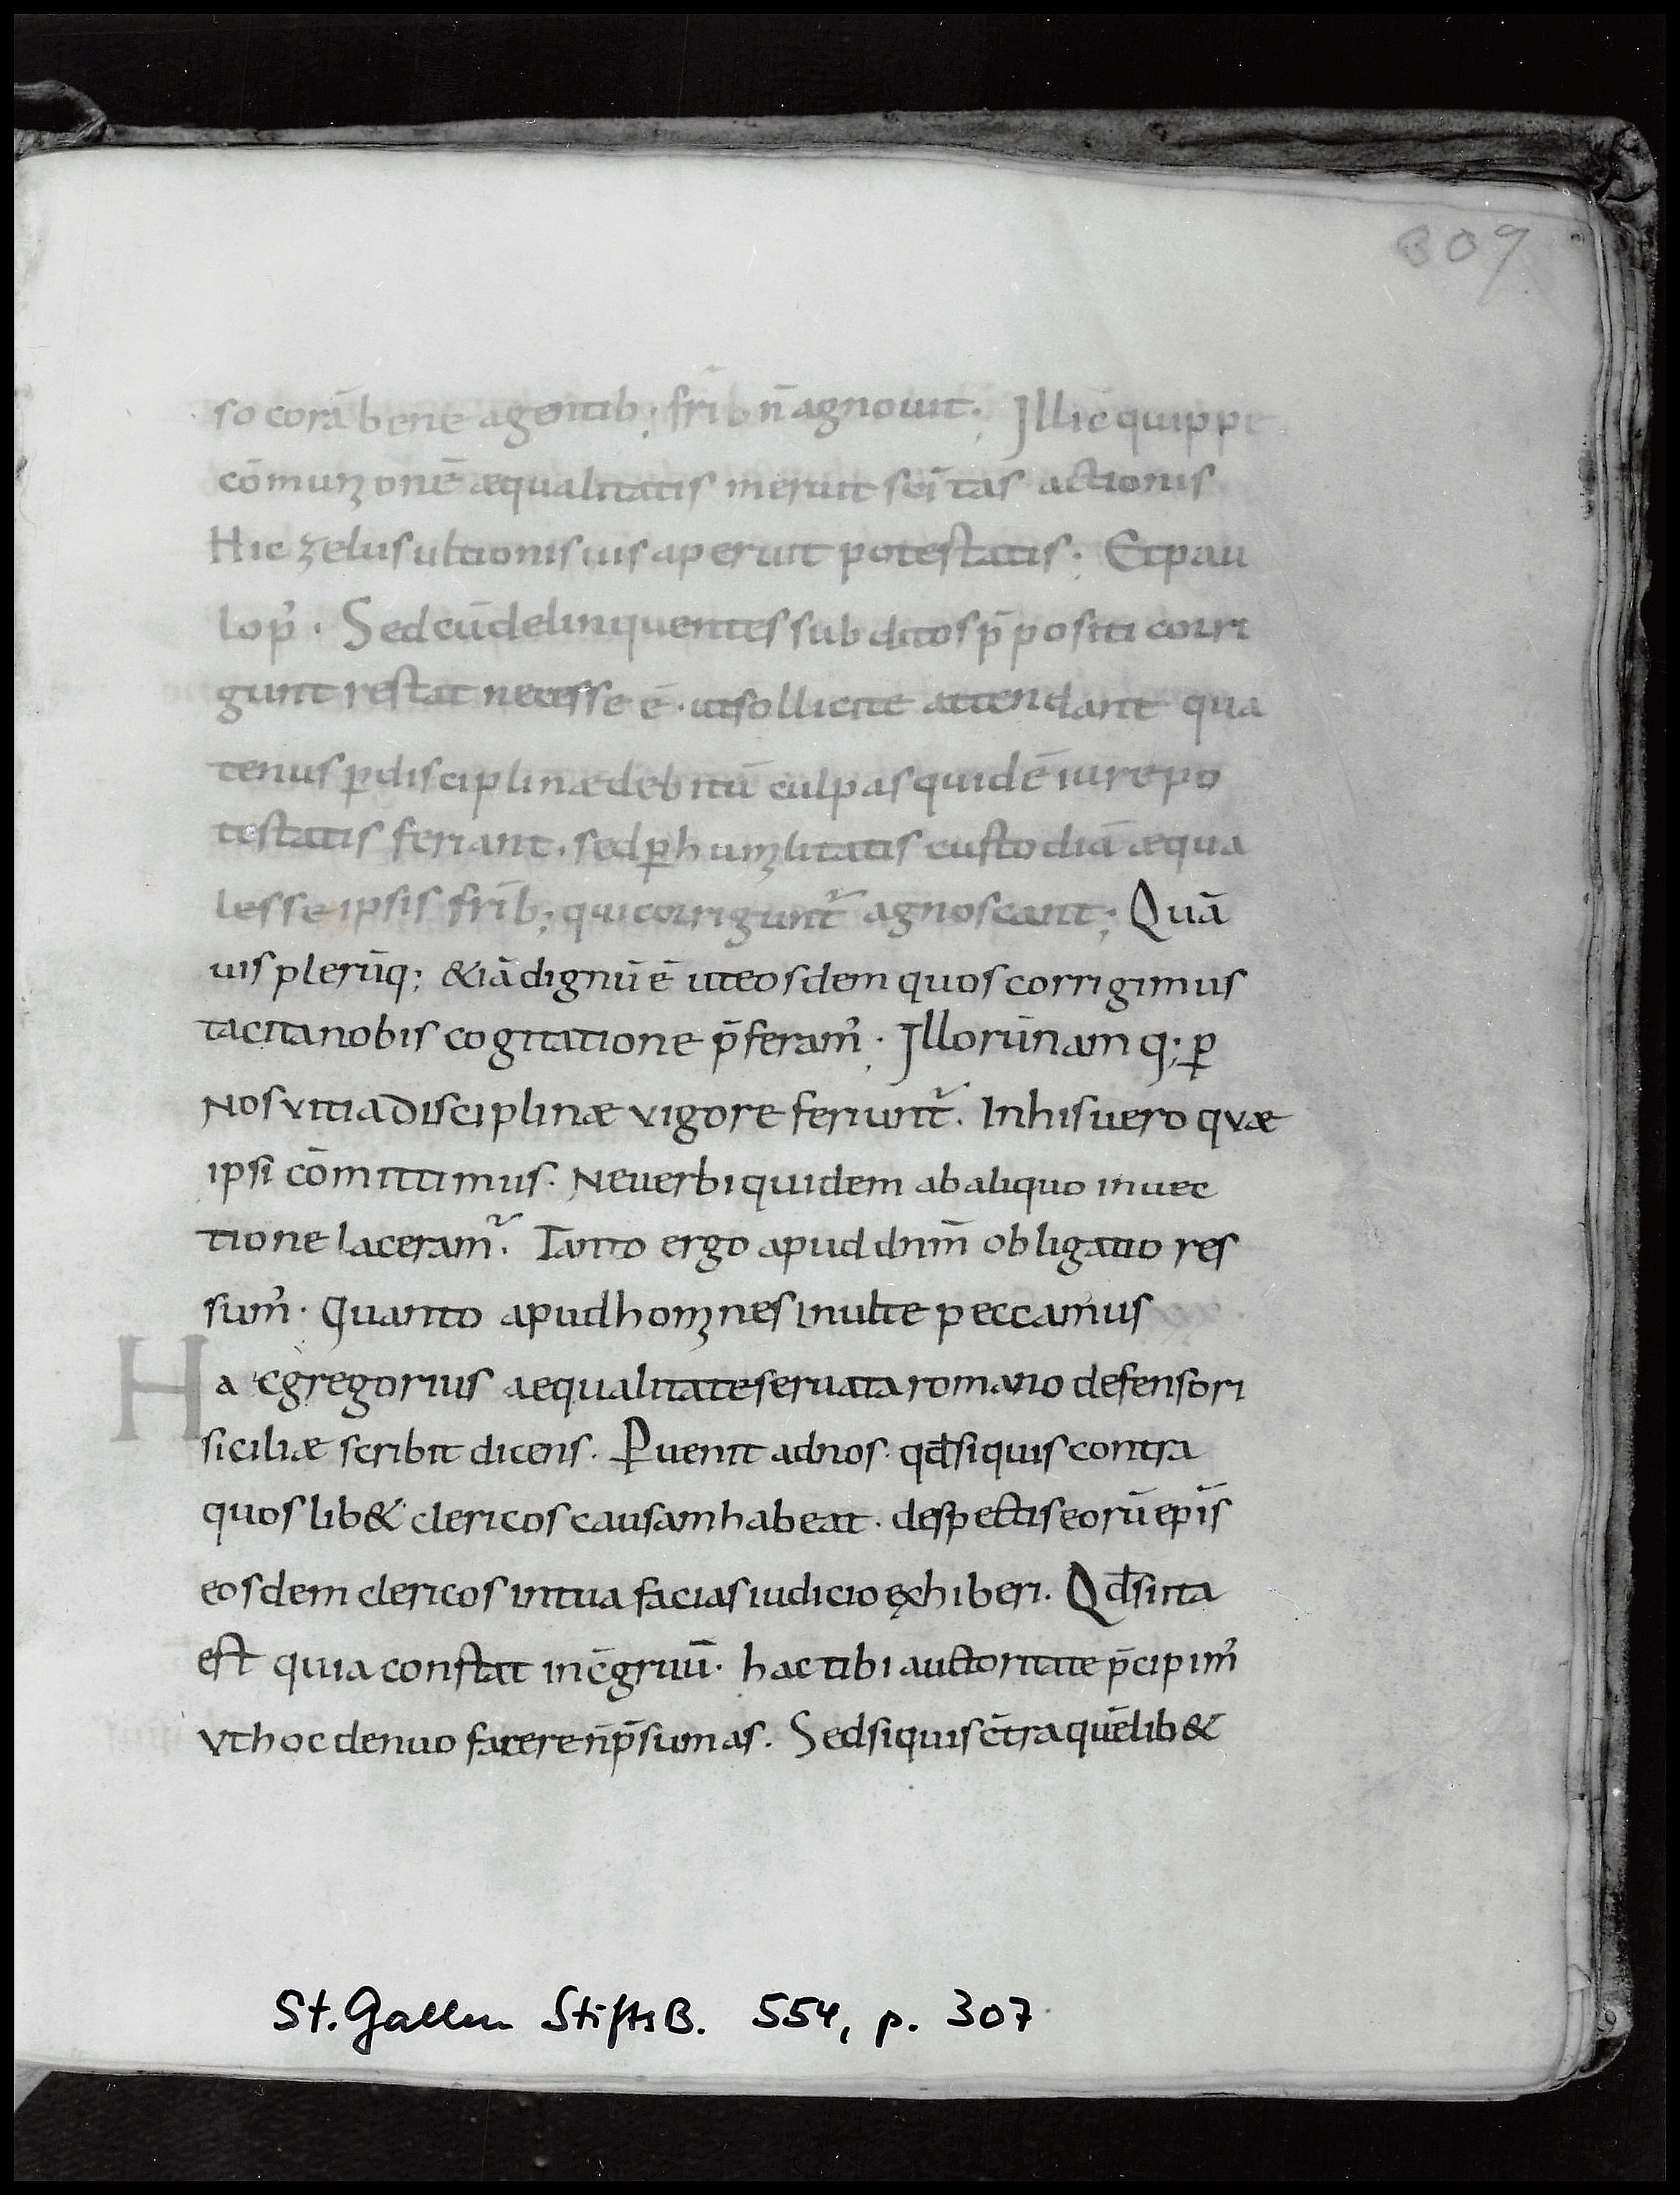 309
so corā bene agentib; frib n̄ agnouit. Illic quippe
cōmunionē æqualitatis meruit sc̄itas actionis
Hic zelus ultionis ius aperuit potestatis. Et pau
lo p'. Sed cū delinquentes subditos p̄positi corri
gunt restat necesse ē. ut sollicite attendant qua
tenus ꝑ disciplinæ debitū culpas quidē iure po
testatis feriant. sed ꝑ humilitatis custodiā æqua
les se ipsis frīb; qui corriguntr agnoscant; Quā
uis plerūq; &iā dignū ē ut eosdem quos corrigimus
tacita nobis cogitatione p̄feram'. Illorū namq; ꝑ
nos vitia disciplinæ vigore feriuntr. In his uero quæ
ipsi cōmittimus. Ne uerbi quidem ab aliquo inuec
tione laceramr. Tanto ergo apud dnm̄ obligatiores
sum'. Quanto apud homines inulte peccamus
Hac gregorius aequalitate seruata romano defensori
siciliæ scribit dicens. Ꝑuenit ad nos. qđ si quis contra
quoslib& clericos causam habeat. despectis eorū ep̄is
eosdem clericos in tua facias iudicio exhiberi. Qđ si ita
est quia constat inc̄gruū. hac tibi auctoritate p̄cipim'
Vt hoc denuo facere n̄ p̄sumas. Sed si quis c̄tra quēlib&
St. Gallen StiftsB. 554, p. 307